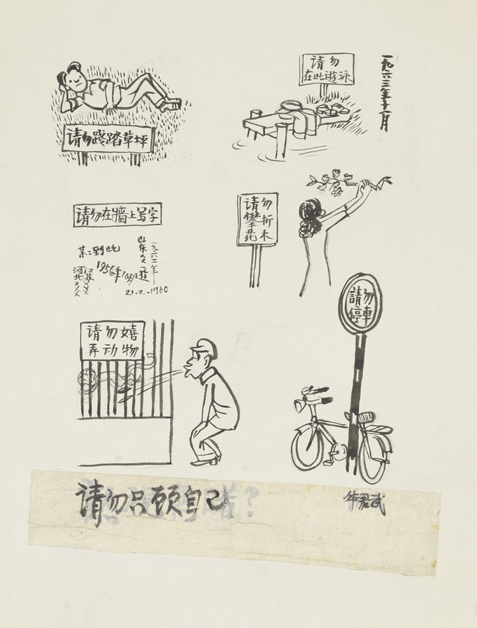 请勿
在此游泳
一九六三年十一月
请勿践踏草坪
请勿攀折花木
请勿在墙上写字
某某到此
一九六二年
1956年
21-2-1960
請勿停車
请勿嬉
弄动物
请勿只顾自己
华君武